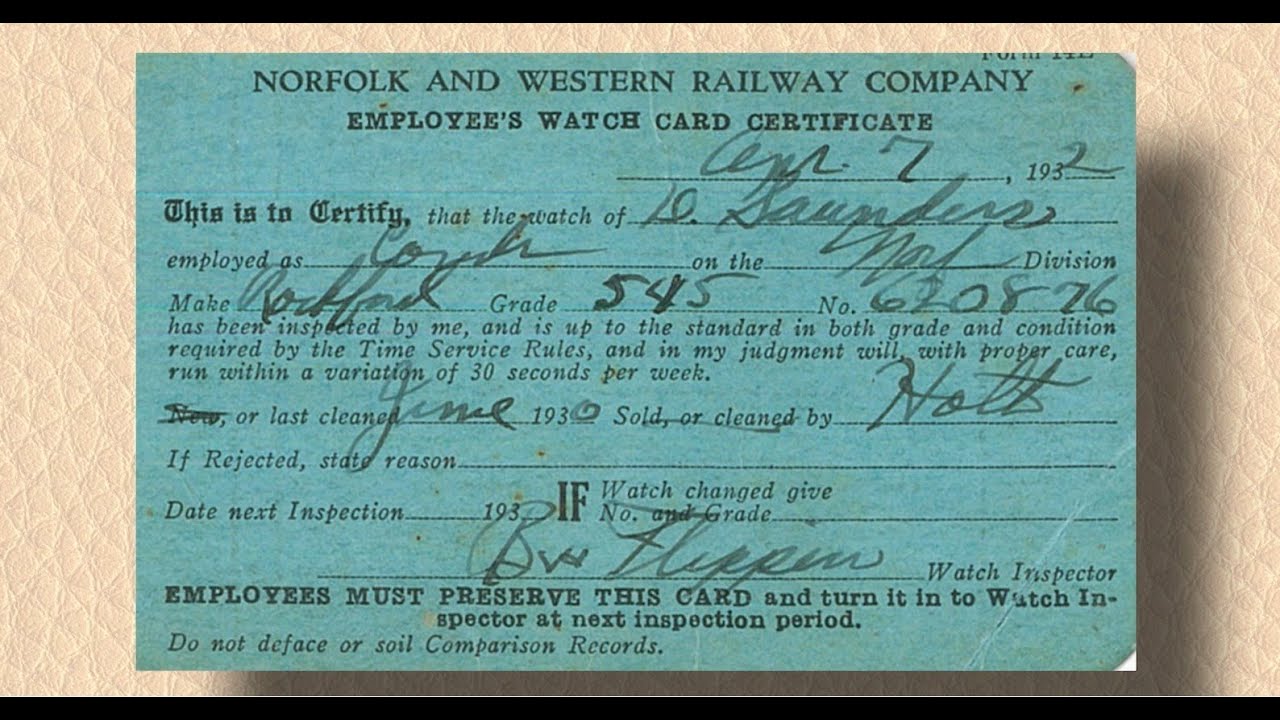 Form 14E
NORFOLK AND WESTERN RAILWAY COMPANY
EMPLOYEE'S WATCH CARD CERTIFICATE
Apr. 7, 1932
This is to Certify, that the watch of D. Saunders
employed as Condr on the Norf Division
Make Rockford Grade 545 No. 620876
has been inspected by me, and is up to the standard in both grade and condition
required by the Time Service Rules, and in my judgment will, with proper care,
run within a variation of 30 seconds per week.
New, or last cleaned June 1930 Sold, or cleaned by Holt
If Rejected, state reason
Date next Inspection 193 IF Watch changed give
No. and Grade
Flippin
Watch Inspector
EMPLOYEES MUST PRESERVE THIS CARD and turn it in to Watch In-
spector at next inspection period.
Do not deface or soil Comparison Records.